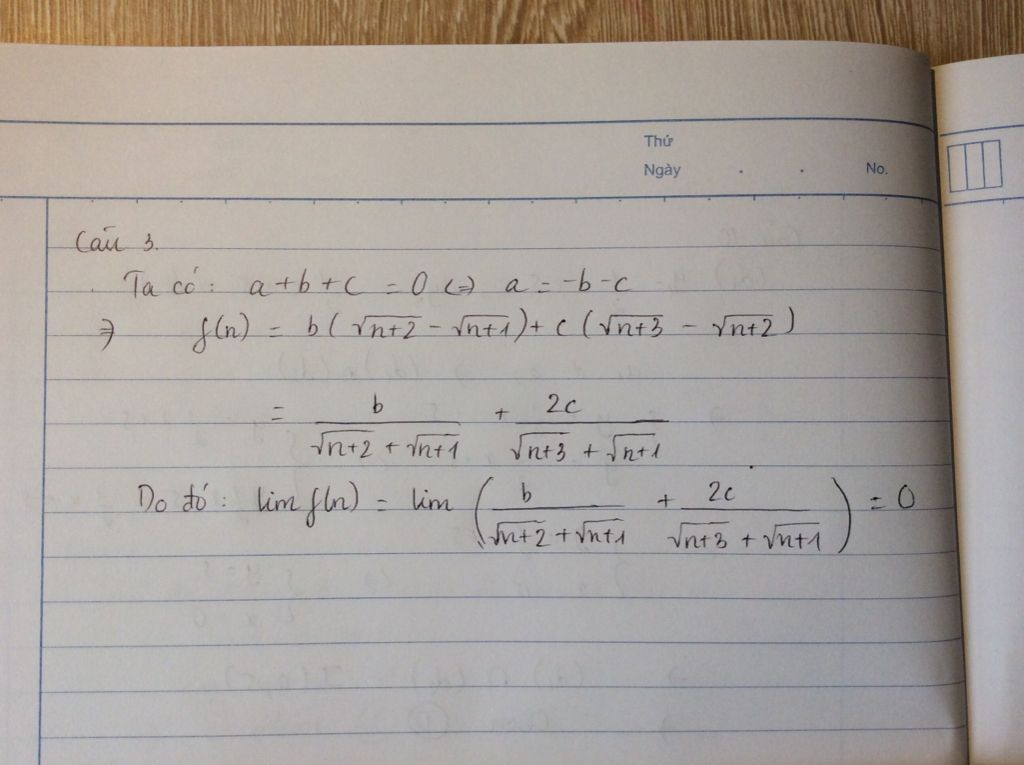 Thứ
Ngày . . No.
Câu 3.
Ta có: a+b+c = 0 (=) a = -b-c
=> f(n) = b(√n+2 - √n+1) + c(√n+3 - √n+2)
= b/(√n+2 + √n+1) + 2c/(√n+3 + √n+1)
Do đó: lim f(n) = lim (b/(√n+2 + √n+1) + 2c/(√n+3 + √n+1)) = 0